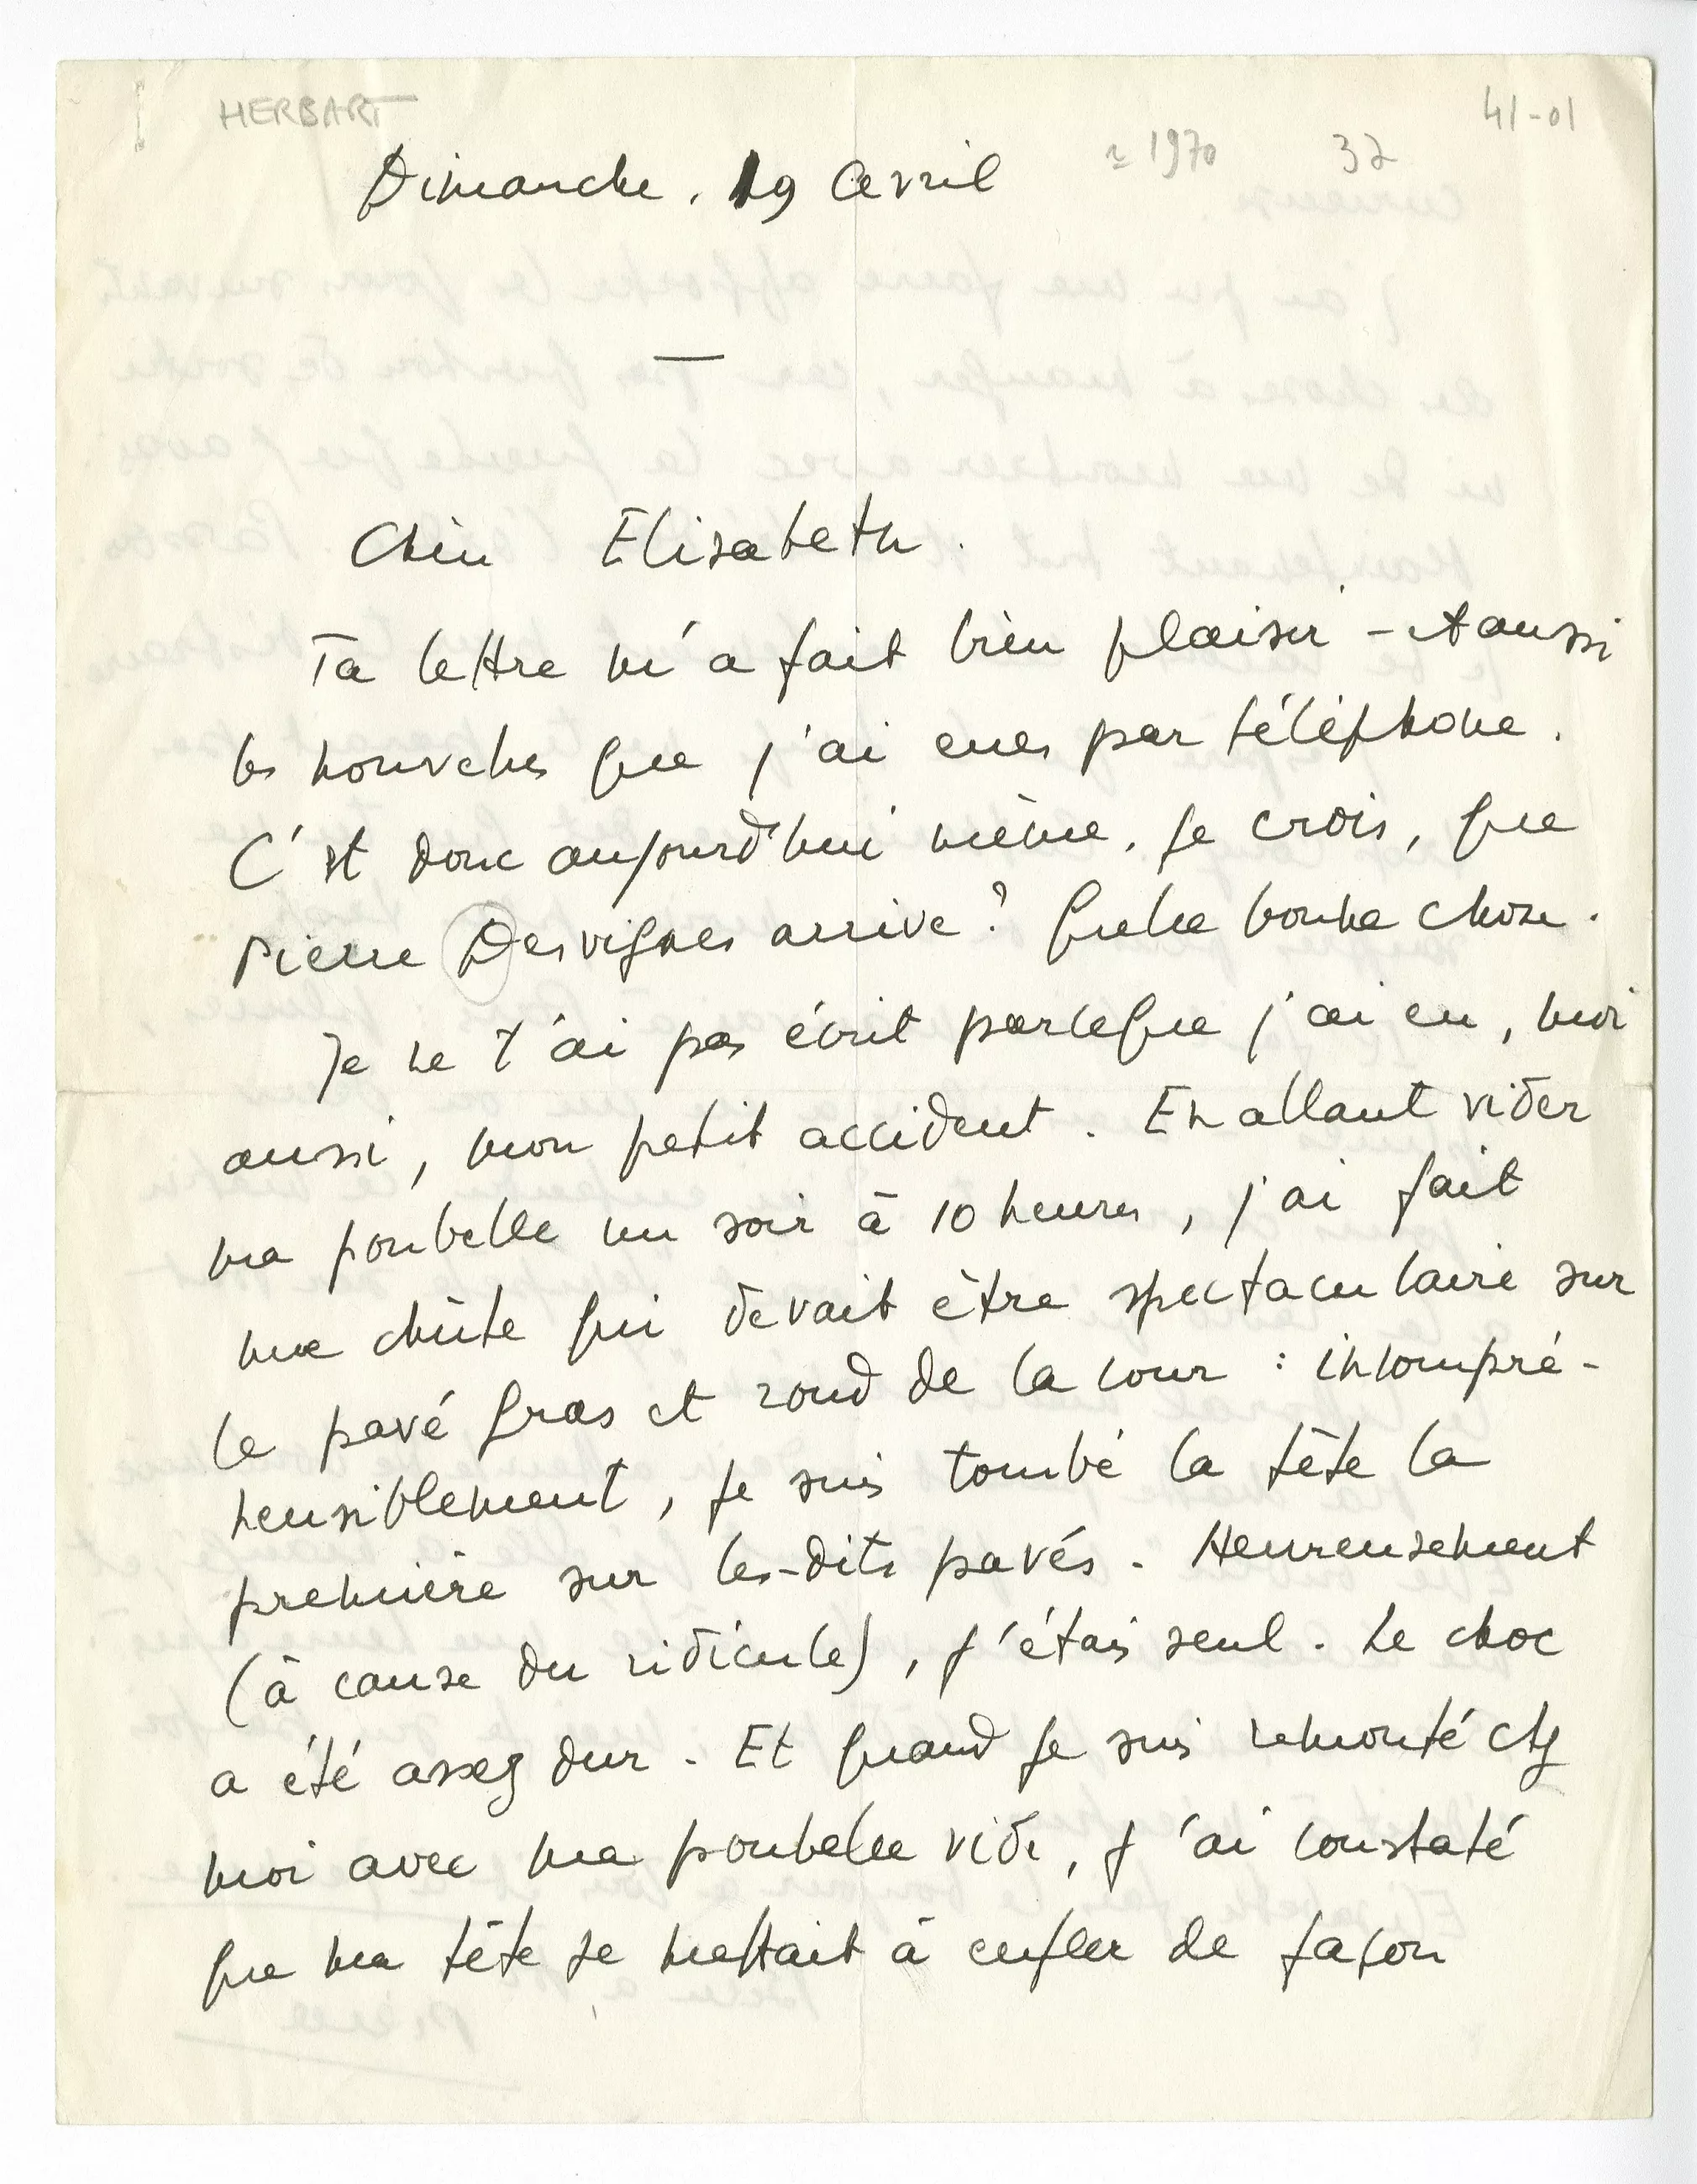 HERBART
41-01
≃ 1970
32
Dimanche. 19 Avril
—
Chère Elisabeth.
Ta lettre m'a fait bien plaisir - et aussi
les nouvelles que j'ai eues par téléphone.
C'est donc aujourd'hui même, je crois, que
Pierre Desvignes arrive? Quelle bonne chose.
Je ne t'ai pas écrit parceque j'ai eu, moi
aussi, mon petit accident. En allant vider
ma poubelle un soir à 10 heures, j'ai fait
une chûte qui devait être spectaculaire sur
le pavé gras et rond de la cour : incompré-
hensiblement, je suis tombé la tête la
première sur les-dits pavés. Heureusement
(à cause du ridicule), j'étais seul. Le choc
a été assez dur. Et quand je suis remonté chz
moi avec ma poubelle vide, j'ai constaté
que ma tête se mettait à enfler de façon